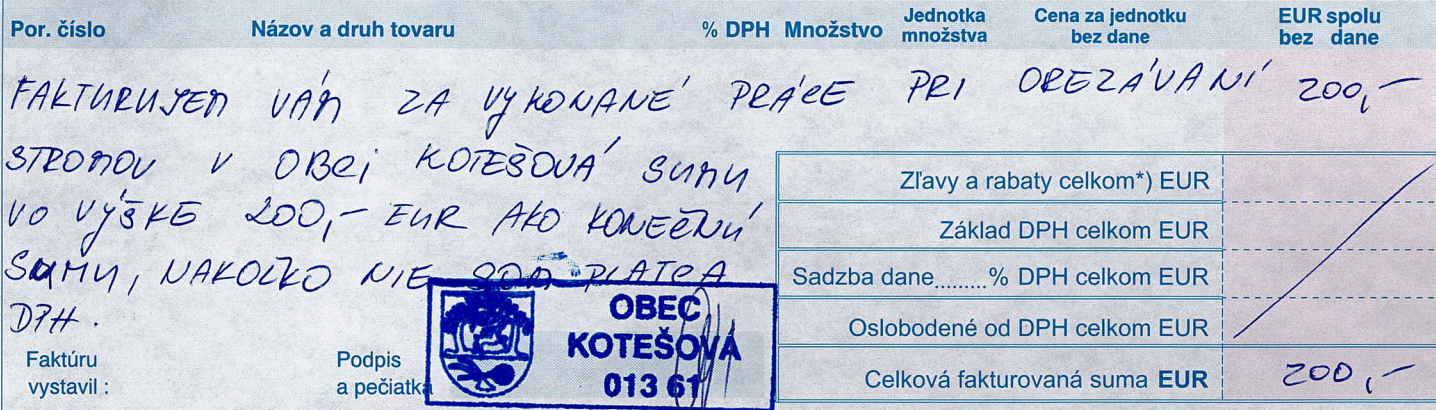 Por. číslo Názov a druh tovaru % DPH Množstvo Jednotka množstva Cena za jednotku bez dane EUR spolu bez dane
FAKTURUJEM VÁM ZA VYKONANÉ PRÁCE PRI OREZÁVANÍ 200,-
STROMOV V OBCI KOTEŠOVÁ SUMU
VO VÝŠKE 200,- EUR AKO KONEČNÚ
SUMU, NAKOĽKO NIE SOM PLATCA
DPH.
Zľavy a rabaty celkom*) EUR
Základ DPH celkom EUR
Sadzba dane.........% DPH celkom EUR
Oslobodené od DPH celkom EUR
Celková fakturovaná suma EUR 200,-
Faktúru vystavil :
Podpis a pečiatka
OBEC
KOTEŠOVÁ
013 61